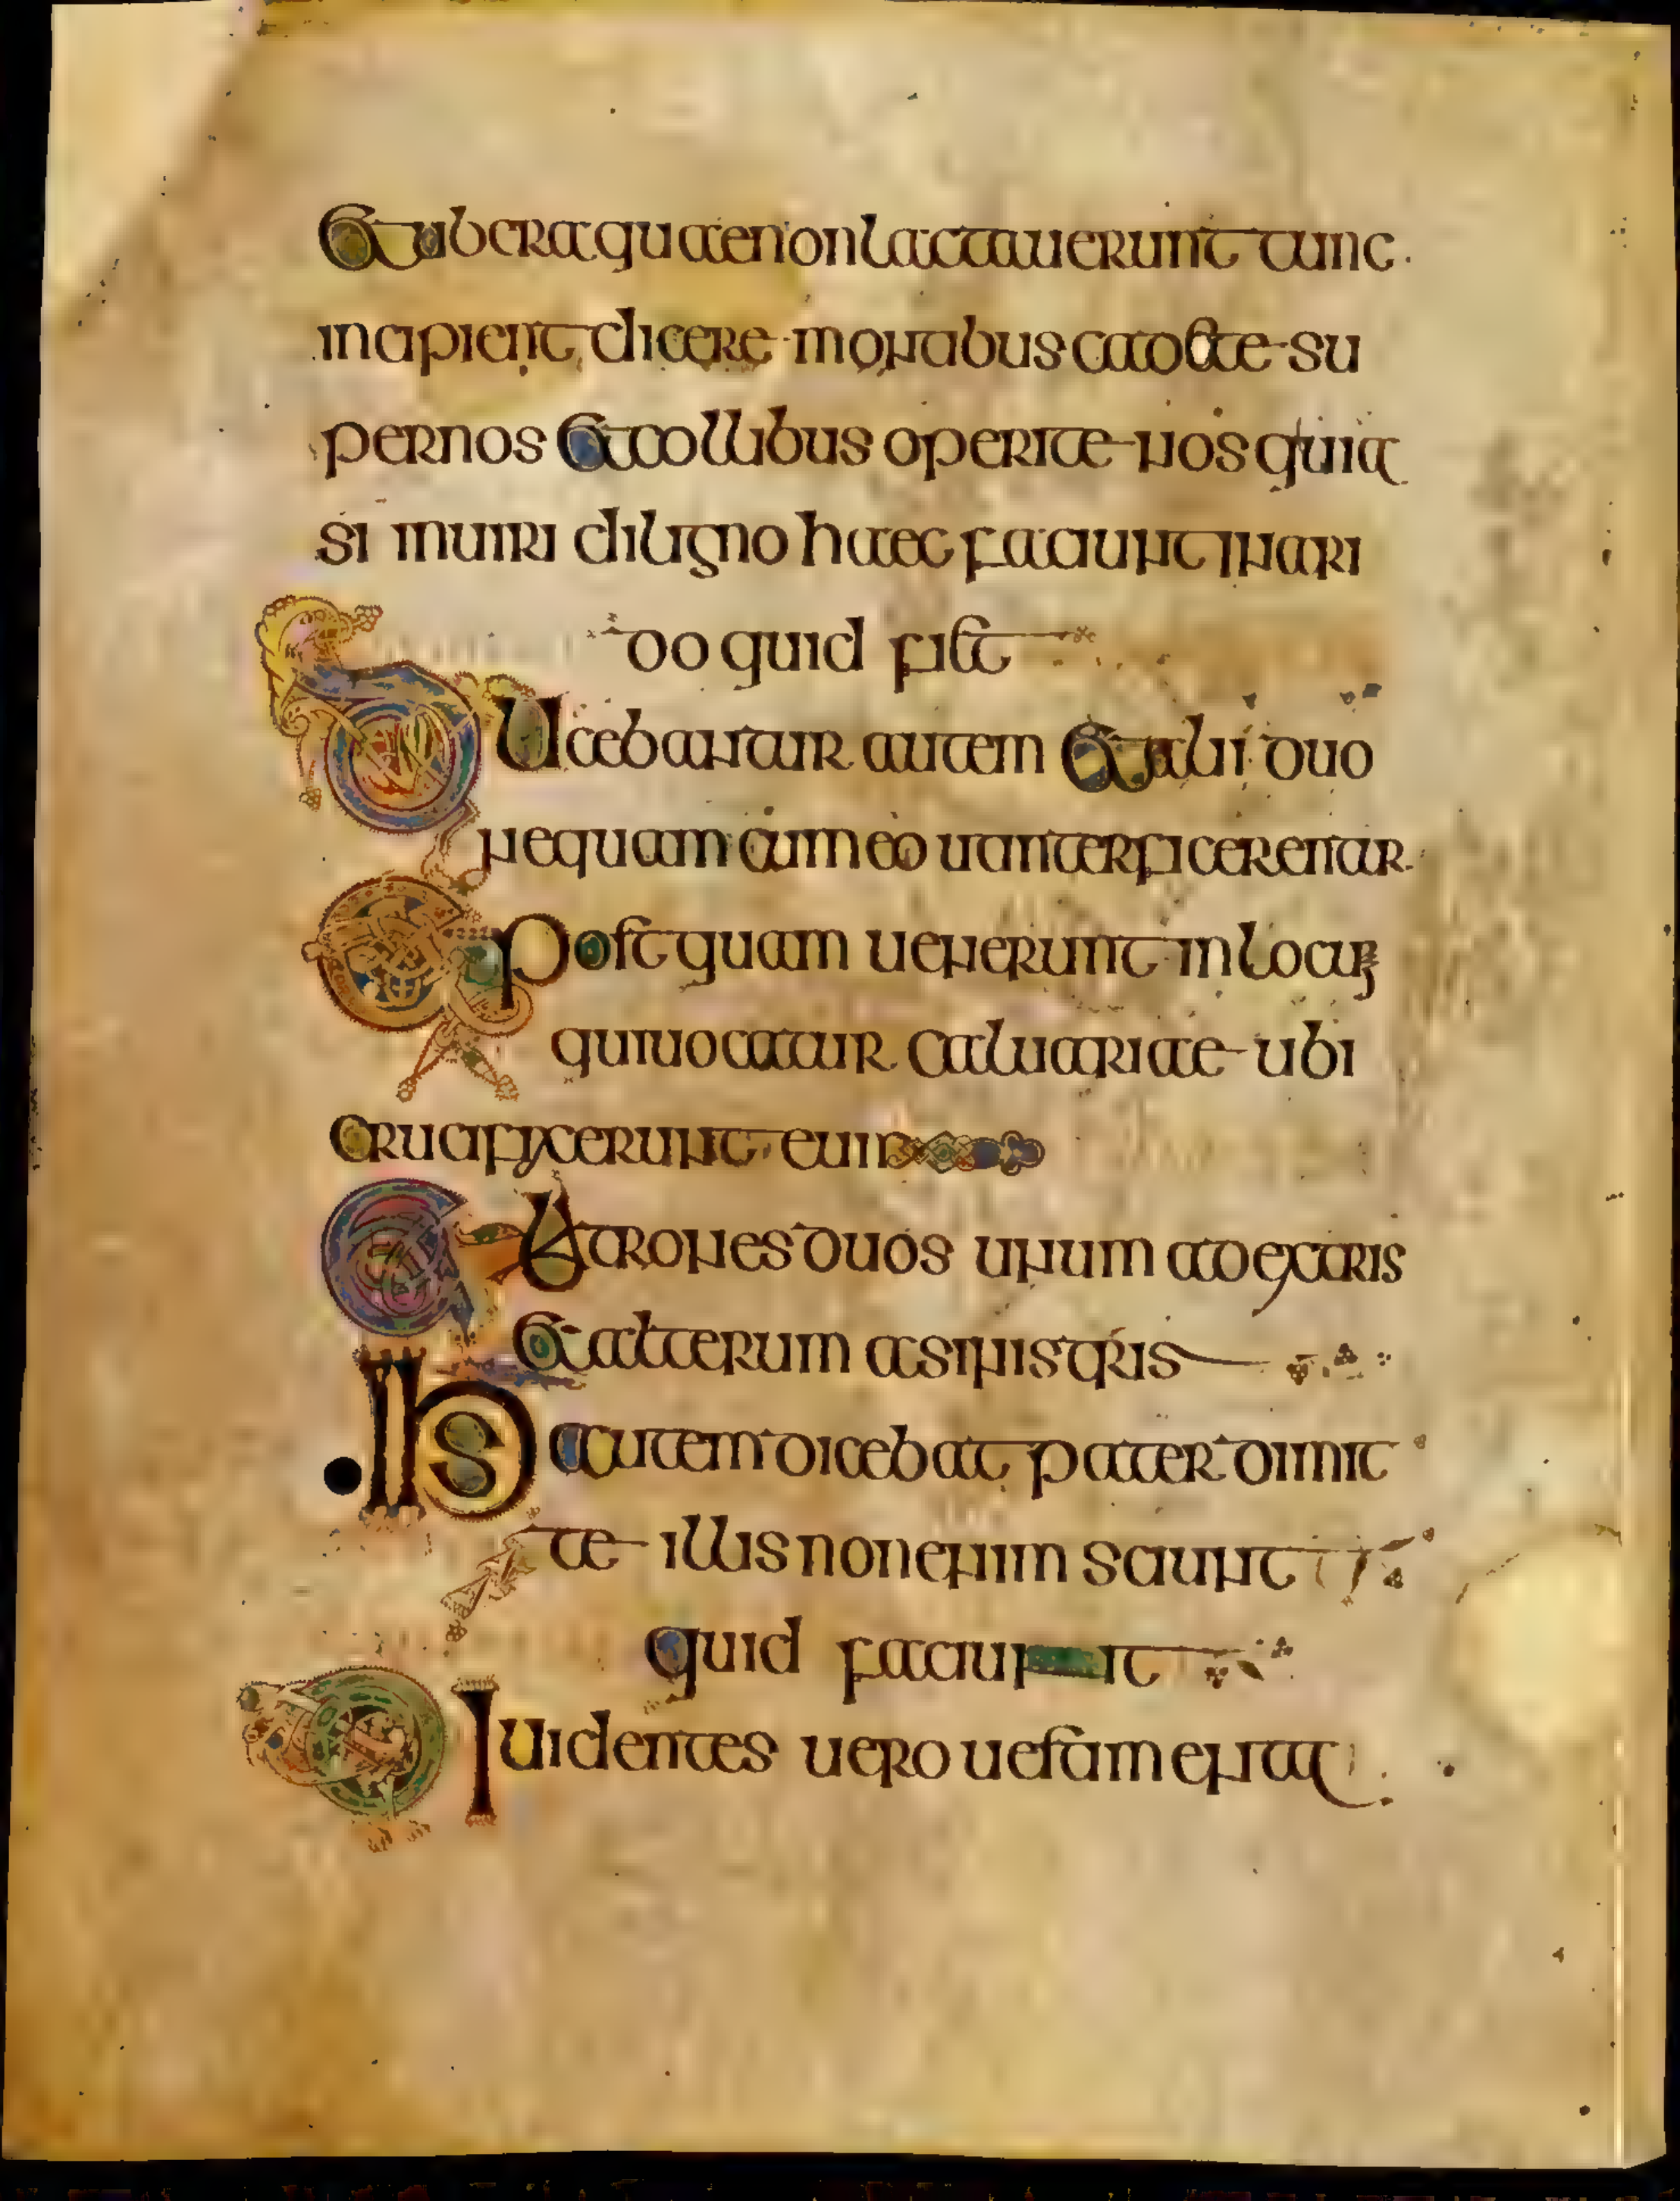 Et ubera quae non lactauerunt tunc·
incipient dicere montabus cadite su
per nos et collibus operite nos quia
si inuiri di ligno haec faciunt in ari
do quid fiet
Ducebantur autem et alii duo
nequam cum eo ut interficerentur
Et postquam uenerunt in locum
qui uocatur caluariae ubi
crucifixerunt eum
Et latrones duos unum a dextris
et alterum a sinistris
Ihs autem dicebat pater dimit
te illis non enim sciunt
quid faciunt
Diuidentes uero uestimenta